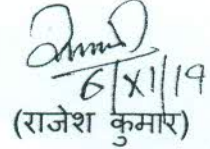 6/XI/19
(राजेश कुमार)